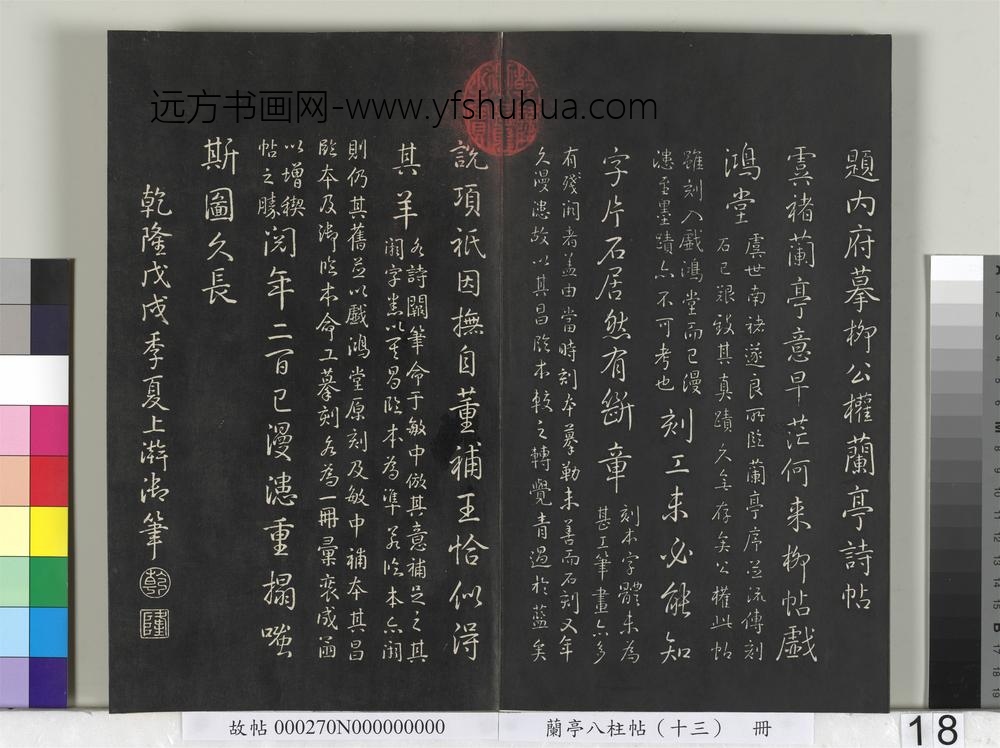 远方书画网-www.yfshuhua.com
題内府摹柳公權蘭亭詩帖
虞褚蘭亭意早茫何来柳帖戲
鴻堂
虞世南褚遂良所臨蘭亭序並流傳刻
石已艱致其真蹟久無存矣公權此帖
雖刻入戲鴻堂而已漫
漶重墨蹟亦不可考也
刻工未必能知
字片石居然有斷章
刻本字體未為
甚工筆畫亦多
有殘闕者盖由當時刻本摹勒未善而石刻又年
久漫漶故以其昌臨本較之轉覺青過於藍矣
說項祇因撫自董補王恰似得
其羊
各詩闕筆命于敏中倣其意補足之其
闕字悉以其昌臨本為準若臨本亦闕
則仍其舊並以戲鴻堂原刻及敏中補本其昌
臨本及御臨本命工摹刻各為一冊彙裘成函
以增稧
帖之勝
閱年二百已漫漶重搨嗤
斯圖久長
乾隆戊戌季夏上澣御筆
乾
隆
故帖 000270N000000000
蘭亭八柱帖(十三) 冊
18